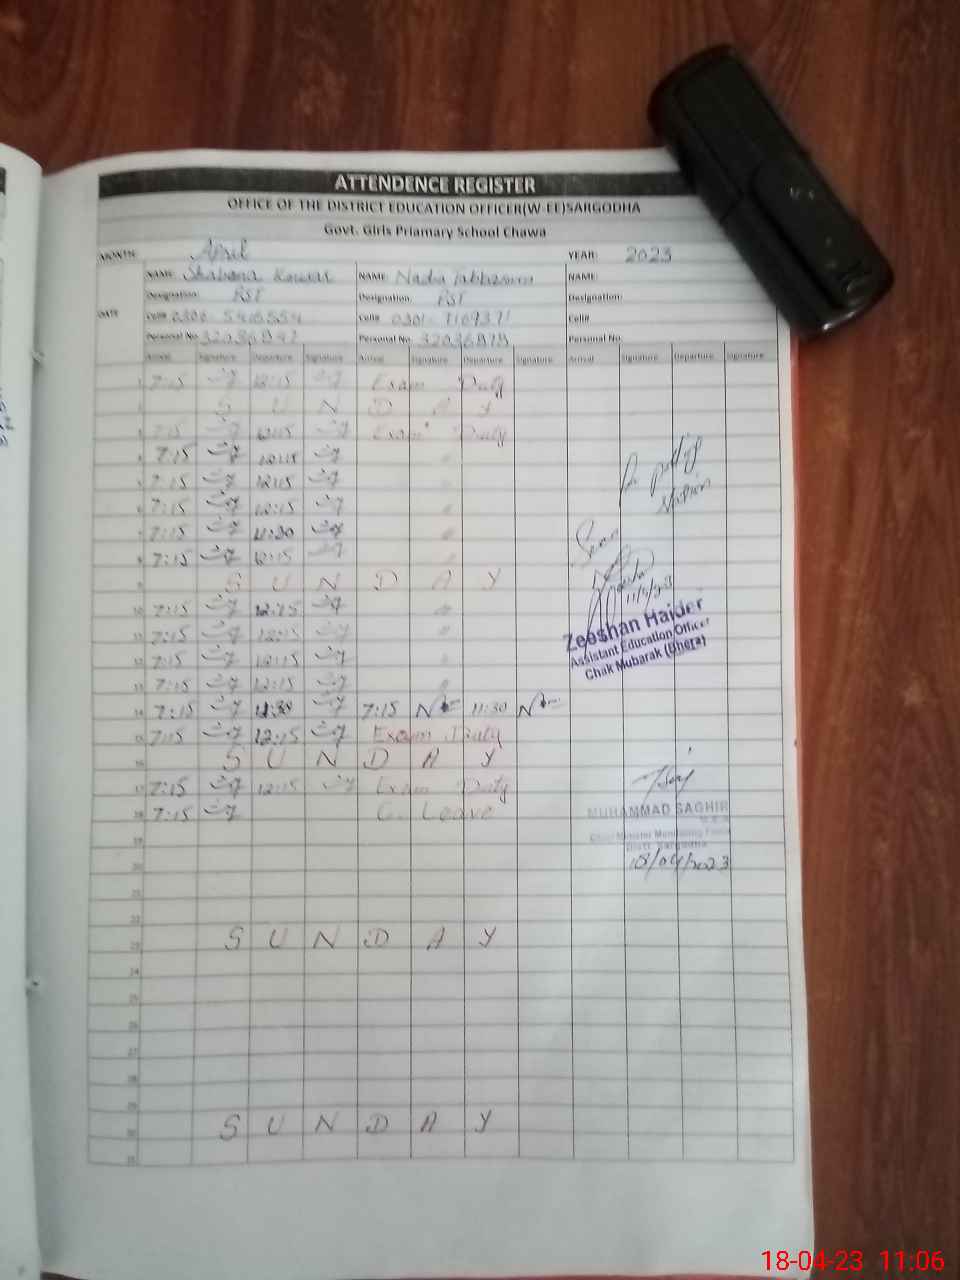 ATTENDENCE REGISTER
OFFICE OF THE DISTRICT EDUCATION OFFICER(W-EE)SARGODHA
Govt. Girls Priamary School Chawa
MONTH: April YEAR: 2023
NAME: Shabana Kousar NAME: Nadia Tabbasum NAME:
Designation: PST Designation: PST Designation:
DATE Cell# 0306 Cell# 0301- Cell#
Personal No. Personal No. Personal No.
Arrival Signature Departure Signature Arrival Signature Departure Signature Arrival Signature Departure Signature
1 7:15 12:15 Exam Duty
2 S U N D A Y
3 7:15 12:15 Exam Duty
4 7:15 12:15 "
5 7:15 12:15 "
6 7:15 12:15 "
7 7:15 11:30 "
8 7:15 12:15 "
9 S U N D A Y
10 7:15 12:15 "
11 7:15 12:15 "
12 7:15 12:15 "
13 7:15 12:15 "
14 7:15 11:30 7:15 11:30
15 7:15 12:15 Exam Duty
16 S U N D A Y
17 7:15 12:15 Exam Duty
18 7:15 C. Leave
19
20
21
22
23 S U N D A Y
24
25
26
27
28
29
30 S U N D A Y
31
Seen
Zeeshan Haider
Assistant Education Officer
Chak Mubarak (Bhera)
MUHAMMAD SAGHIR
M.E.A
Chief Minister Monitoring Force
Distt. Sargodha
18/04/2023
18-04-23 11:06